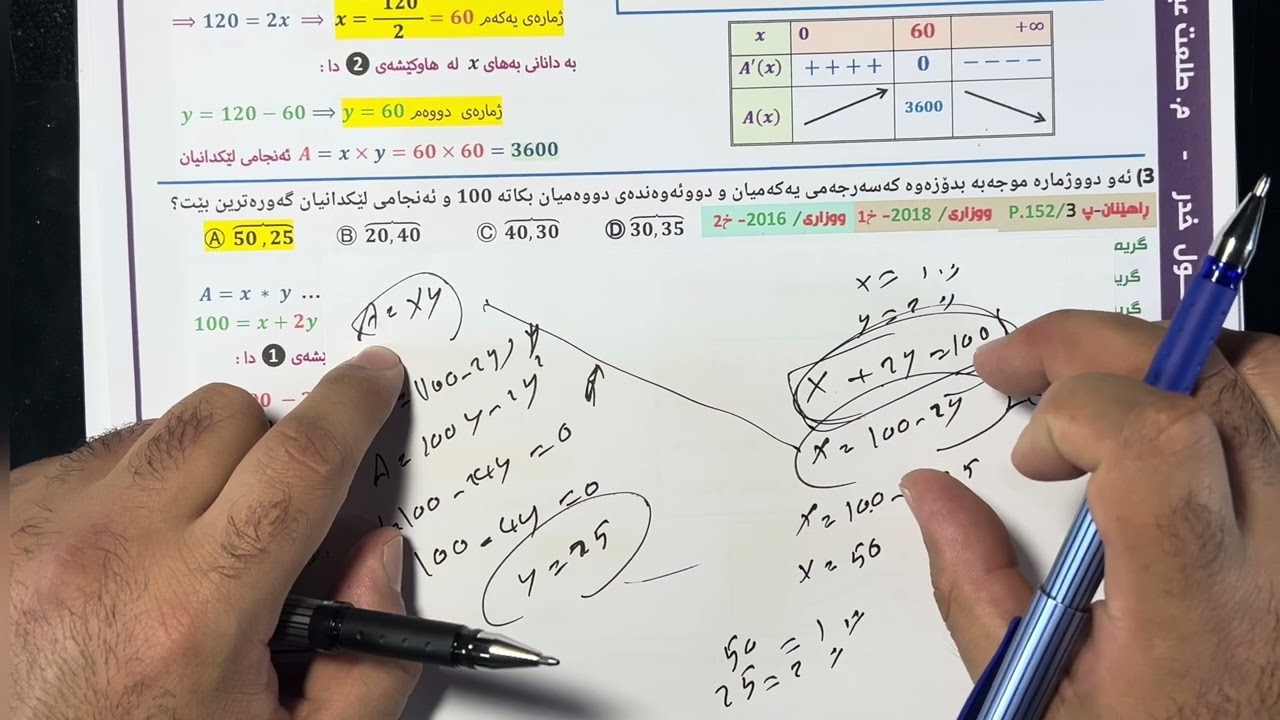 ⟹ 120 = 2x ⟹ x = 120/2 = 60 ژمارەی یەکەم
بە دانانی بەهای x لە هاوکێشەی 2 دا :
y = 120 − 60 ⟹ y = 60 ژمارەی دووەم
ئەنجامی لێکدانیان A = x × y = 60 × 60 = 3600
x 0 60 +∞
A′(x) + + + + 0 − − − −
A(x) 3600
3) ئەو دووژمارە موجەبە بدۆزەوە کەسەرجەمی یەکەمیان و دووئەوەندەی دووەمیان بکاتە 100 و ئەنجامی لێکدانیان گەورەترین بێت؟
راهێنان-پ P.152/3 ووزاری/ 2018- خ1 ووزاری/ 2016- خ2
Ⓐ 50,25 Ⓑ 20,40 Ⓒ 40,30 Ⓓ 30,35
گریم
گری
گر
A = x * y ...
100 = x + 2y
بشەی 1 دا :
م. طلعت
خدر
ـول
A = xy
= (100-2y)y
A = 100y - 2y²
100 - 4y = 0
y = 25
x = 100 - 2y
x + 2y = 100
x = 50
50 =
25 =